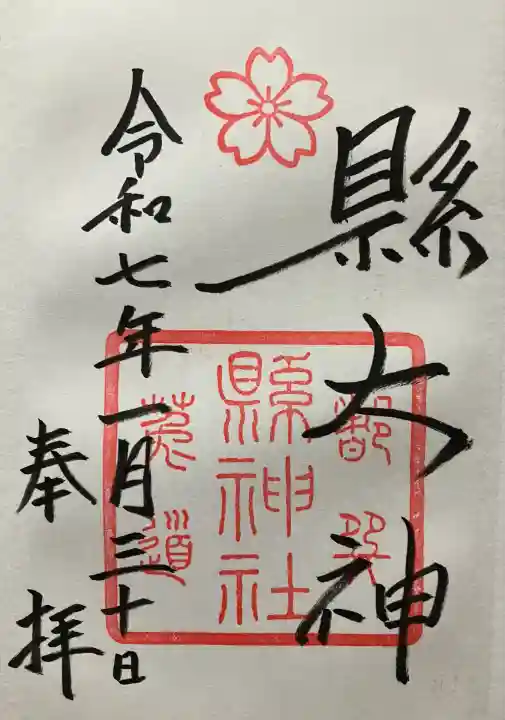 縣大神
縣神社
菟道
令和七年一月三十日
奉拝